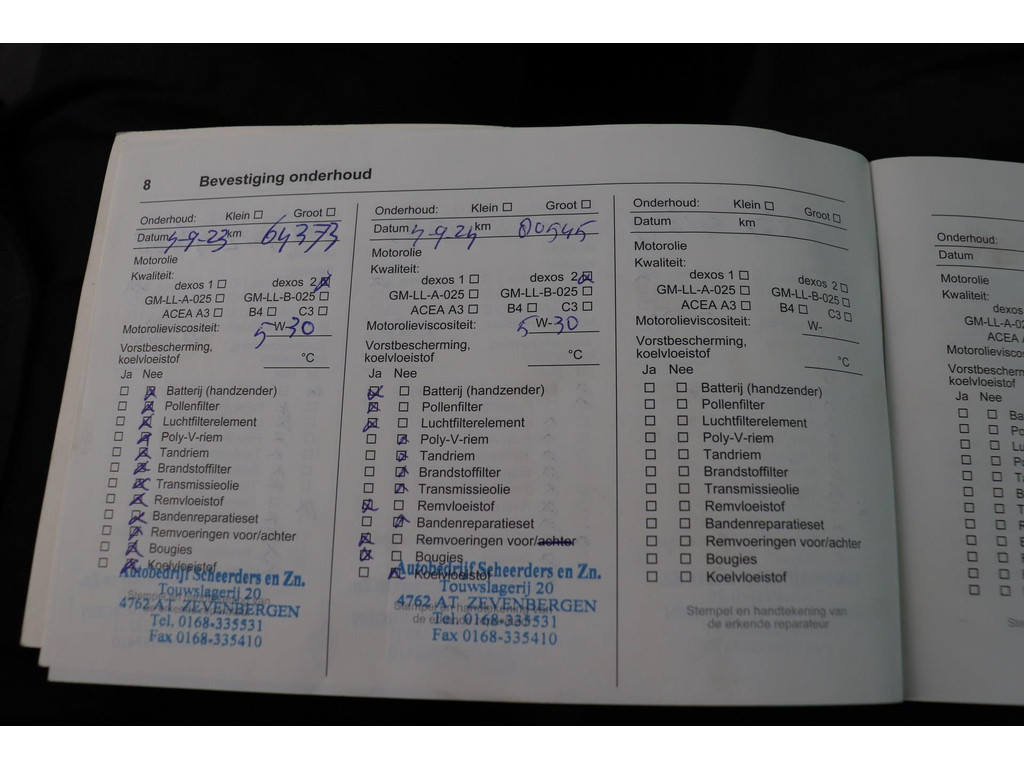 8 Bevestiging onderhoud
Onderhoud: Klein ☐ Groot ☐
Datum 4-9-23 km 64373
Motorolie
Kwaliteit:
dexos 1 ☐ dexos 2 ☒
GM-LL-A-025 ☐ GM-LL-B-025 ☐
ACEA A3 ☐ B4 ☐ C3 ☐
Motorolieviscositeit: 5 W-30
Vorstbescherming,
koelvloeistof °C
Ja Nee
☐ ☒ Batterij (handzender)
☐ ☒ Pollenfilter
☐ ☒ Luchtfilterelement
☐ ☒ Poly-V-riem
☐ ☒ Tandriem
☐ ☒ Brandstoffilter
☐ ☒ Transmissieolie
☐ ☒ Remvloeistof
☐ ☒ Bandenreparatieset
☐ ☒ Remvoeringen voor/achter
☐ ☒ Bougies
☐ ☒ Koelvloeistof
Autobedrijf Scheerders en Zn.
Touwslagerij 20
4762 AT ZEVENBERGEN
Tel. 0168-335531
Fax 0168-335410
Onderhoud: Klein ☐ Groot ☐
Datum 4-9-24 km 80545
Motorolie
Kwaliteit:
dexos 1 ☐ dexos 2 ☒
GM-LL-A-025 ☐ GM-LL-B-025 ☐
ACEA A3 ☐ B4 ☐ C3 ☐
Motorolieviscositeit: 5 W-30
Vorstbescherming,
koelvloeistof °C
Ja Nee
☒ ☐ Batterij (handzender)
☒ ☐ Pollenfilter
☒ ☐ Luchtfilterelement
☐ ☒ Poly-V-riem
☐ ☒ Tandriem
☐ ☒ Brandstoffilter
☐ ☒ Transmissieolie
☒ ☐ Remvloeistof
☐ ☒ Bandenreparatieset
☒ ☐ Remvoeringen voor/achter
☒ ☐ Bougies
☐ ☒ Koelvloeistof
Autobedrijf Scheerders en Zn.
Touwslagerij 20
4762 AT ZEVENBERGEN
Stempel en handtekening van
de erkende reparateur
Tel. 0168-335531
Fax 0168-335410
Onderhoud: Klein ☐ Groot ☐
Datum km
Motorolie
Kwaliteit:
dexos 1 ☐ dexos 2 ☐
GM-LL-A-025 ☐ GM-LL-B-025 ☐
ACEA A3 ☐ B4 ☐ C3 ☐
Motorolieviscositeit: W-
Vorstbescherming,
koelvloeistof °C
Ja Nee
☐ ☐ Batterij (handzender)
☐ ☐ Pollenfilter
☐ ☐ Luchtfilterelement
☐ ☐ Poly-V-riem
☐ ☐ Tandriem
☐ ☐ Brandstoffilter
☐ ☐ Transmissieolie
☐ ☐ Remvloeistof
☐ ☐ Bandenreparatieset
☐ ☐ Remvoeringen voor/achter
☐ ☐ Bougies
☐ ☐ Koelvloeistof
Stempel en handtekening van
de erkende reparateur
Onderhoud:
Datum
Motorolie
Kwaliteit:
dexos
GM-LL-A-0
ACEA
Motorolieviscos
Vorstbescherm
koelvloeistof
Ja Nee